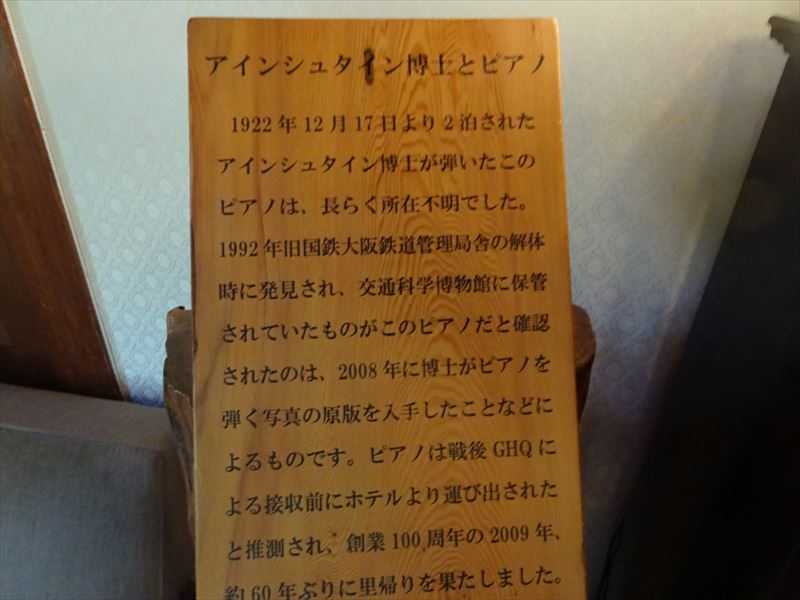 アインシュタイン博士とピアノ
1922年12月17日より2泊された
アインシュタイン博士が弾いたこの
ピアノは、長らく所在不明でした。
1992年旧国鉄大阪鉄道管理局舎の解体
時に発見され、交通科学博物館に保管
されていたものがこのピアノだと確認
されたのは、2008年に博士がピアノを
弾く写真の原版を入手したことなどに
よるものです。ピアノは戦後GHQに
よる接収前にホテルより運び出された
と推測され、創業100周年の2009年、
約60年ぶりに里帰りを果たしました。